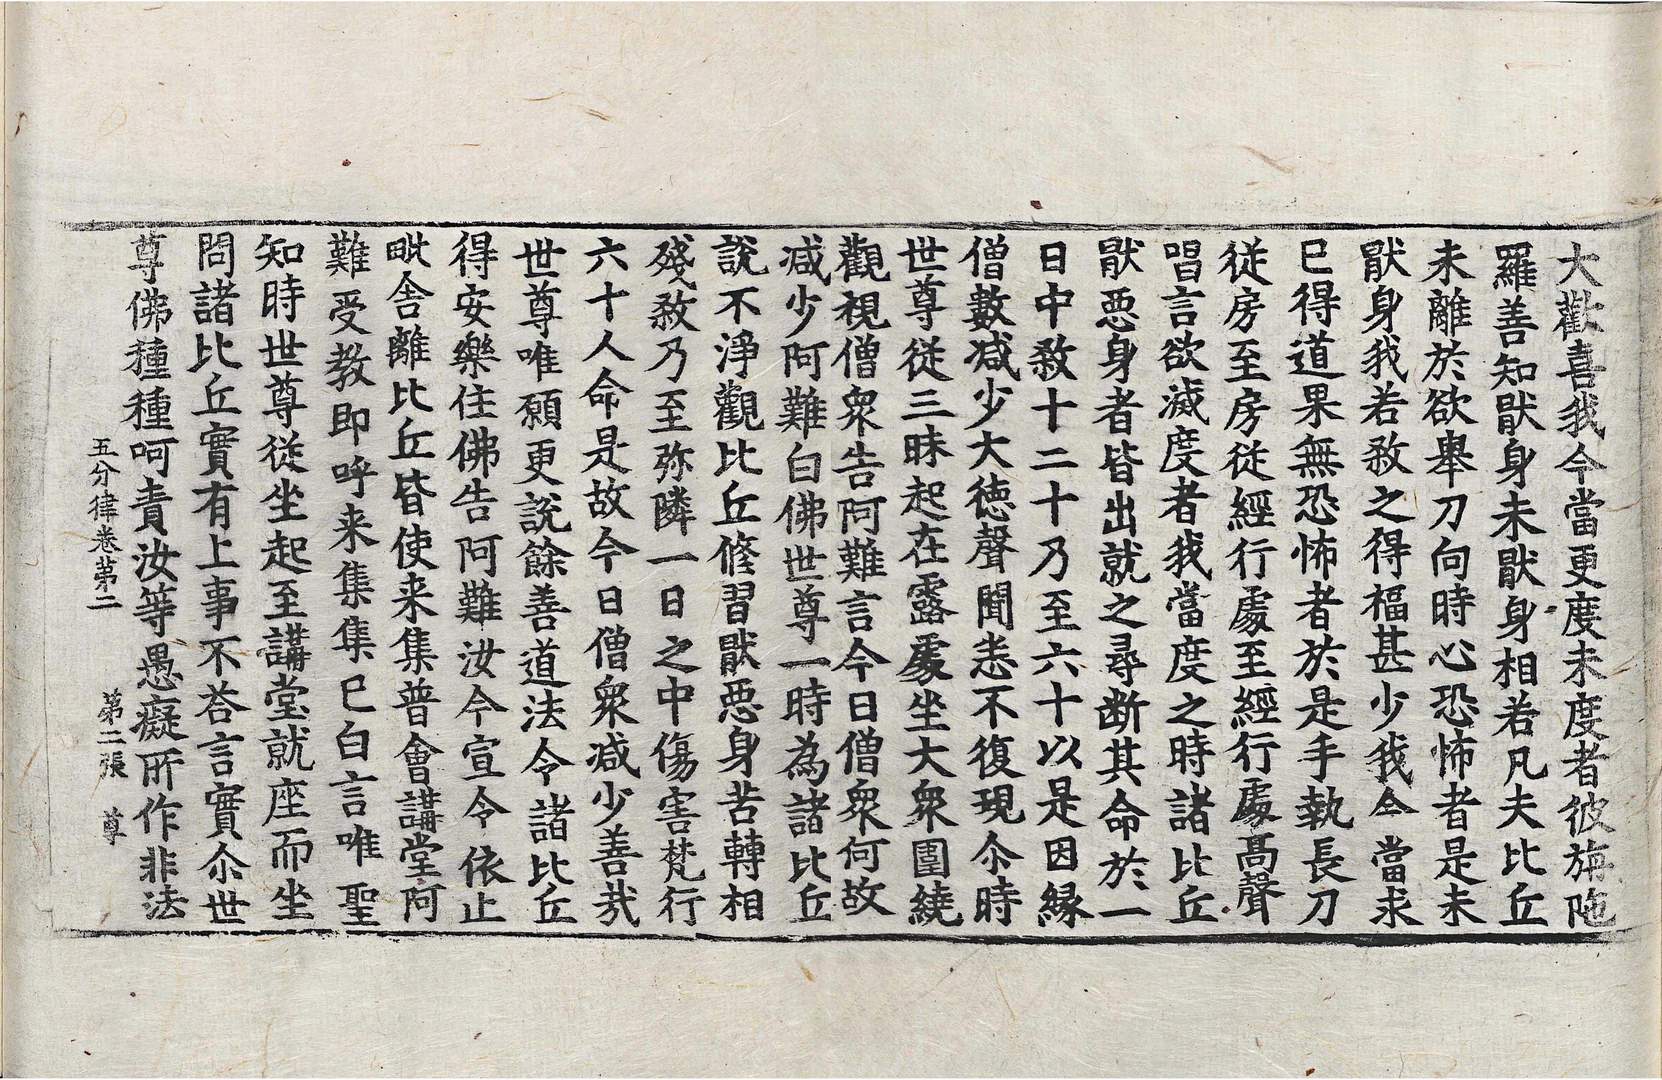 大歡喜我今當更度未度者彼旃陁
羅善知猒身未猒身相若凡夫比丘
未離於欲舉刀向時心恐怖者是未
猒身我若煞之得福甚少我今當求
已得道果無恐怖者於是手執長刀
從房至房從經行處至經行處高聲
唱言欲滅度者我當度之時諸比丘
猒惡身者皆出就之尋斷其命於一
日中煞十二十乃至六十以是因緣
僧數減少大德聲聞悉不復現尒時
世尊從三昧起在露處坐大衆圍繞
觀視僧衆告阿難言今日僧衆何故
減少阿難白佛世尊一時為諸比丘
說不淨觀比丘修習猒惡身苦轉相
殘煞乃至弥隣一日之中傷害梵行
六十人命是故今日僧衆減少善㢤
世尊唯願更說餘善道法令諸比丘
得安樂住佛告阿難汝今宣令依止
毗舍離比丘皆使来集普會講堂阿
難受教即呼来集集已白言唯聖
知時世尊從坐起至講堂就座而坐
問諸比丘實有上事不荅言實尒世
尊佛種種呵責汝等愚癡所作非法
五分律卷第二 第二張 尊